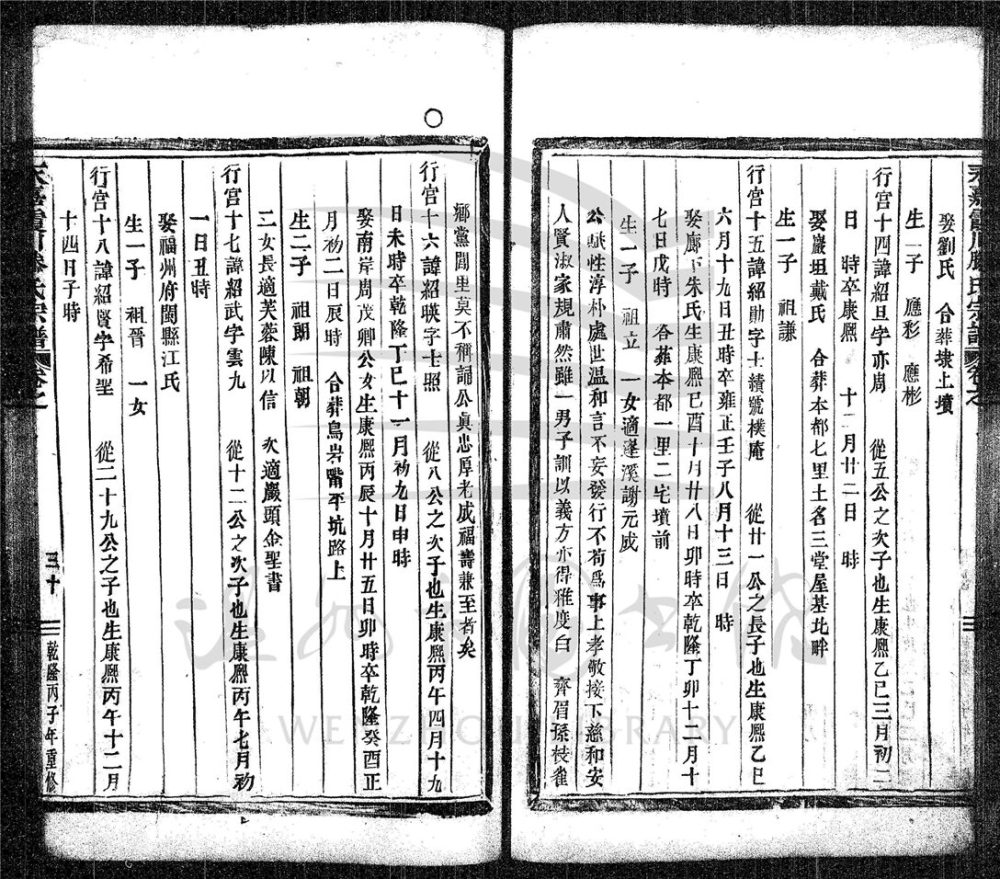 娶劉氏 合葬墺上墳
生二子 應彩 應彬
行宫十四諱紹旦字亦周 從五公之次子也生康熙乙巳三月初二
日 時卒康熙 十二月廿二日 時
娶巖坦戴氏 合葬本都七里土名三堂屋基北畔
生一子 祖謙
行宫十五諱紹勛字士績號樸庵 從廿一公之長子也生康熙乙巳
六月十九日丑時卒雍正壬子八月十三日 時
娶廊下朱氏生康熙己酉十月廿八日卯時卒乾隆丁卯十二月十
七日戊時 合葬本都一里二宅墳前
生一子 祖立 一女適蓬溪謝元威
公賦性淳朴處世温和言不妄發行不苟爲事上孝敬接下慈和安
人賢淑家規肅然雖一男子訓以義方亦得雅度白 齊眉孫枝雀
鄉黨閭里莫不稱誦公眞忠厚老成福壽兼至者矣
行宫十六諱紹暎字士照 從八公之次子也生康熙丙午四月十九
日未時卒乾隆丁巳十一月初九日申時
娶南岸周茂卿公女生康熙丙辰十月廿五日卯時卒乾隆癸酉正
月初二日辰時 合葬鳥岩嘴平坑路上
生二子 祖朗 祖朝
二女長適芙蓉陳以信 次適巖頭金聖書
行宫十七諱紹武字雲九 從十二公之次子也生康熙丙午七月初
一日丑時
娶福州府閩縣江氏
生一子 祖晉 一女
行宫十八諱紹賢字希聖 從二十九公之子也生康熙丙午十二月
十四日子時
三十 乾隆丙子年重修
WENZHOU LIBRARY